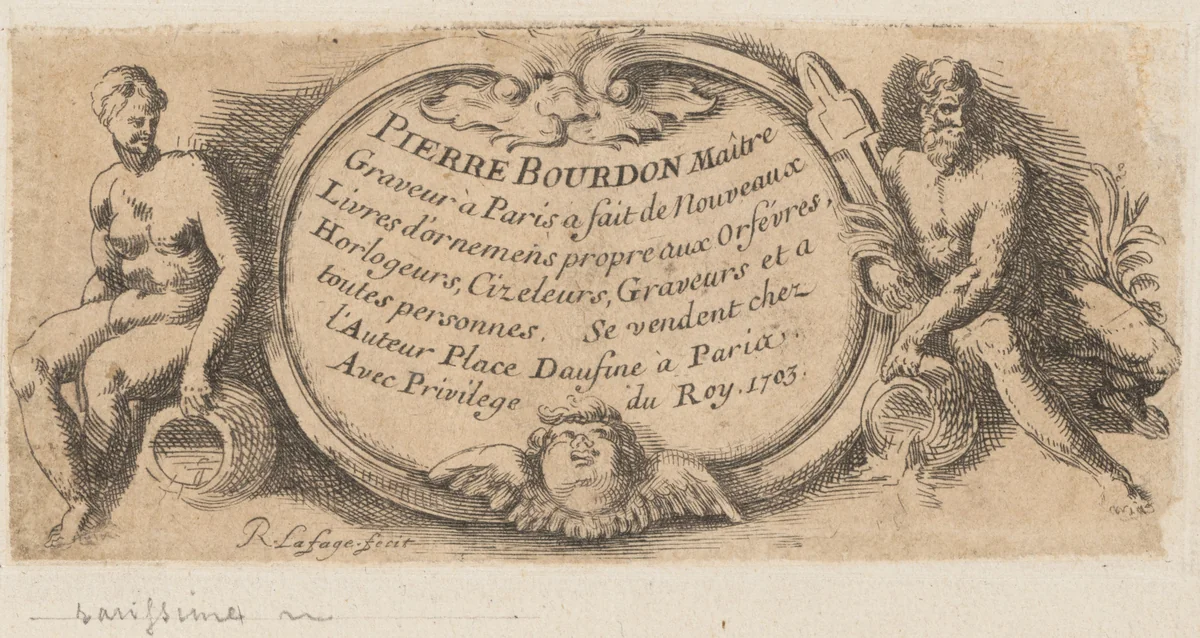 PIERRE BOURDON Maître
Graveur à Paris a fait de Nouveaux
Livres d'ornemens propre aux Orfévres,
Horlogeurs, Cizeleurs, Graveurs et a
toutes personnes. Se vendent chez
l'Auteur Place Daufine à Paris.
Avec Privilege du Roy. 1703.
R. Lafage. fecit
rarissime